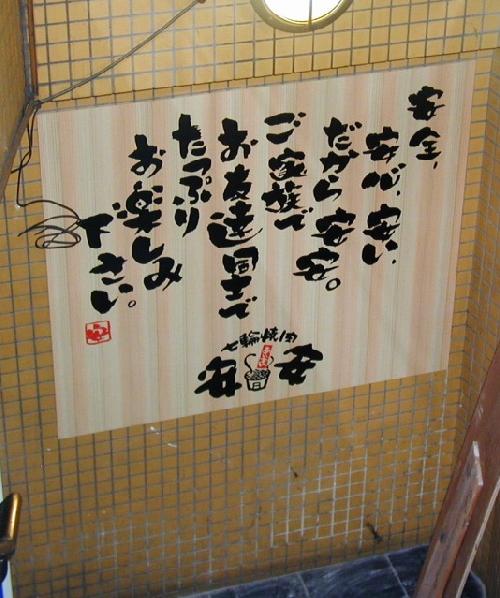 安全、
安心、安い、
だから安安。
ご家族で
お友達同士で
たっぷり
お楽しみ
下さい。
七輪焼肉
安安